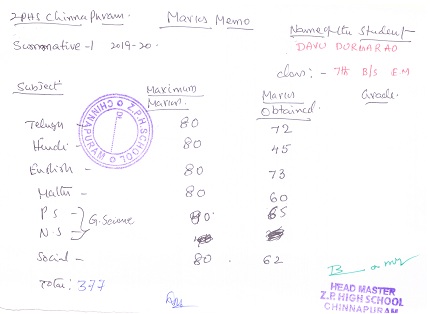 ZPHS Chinnapuram. Marks Memo
Name of the Student
Summative-1 2019-20. DAVU DORABABU
class:- 7th B/S E.M
Subject Maximum Marks. Marks Obtained. Grade.
Z.P.H SCHOOL CHINNAPURAM
Telugu - 80 72
Hindi - 80 45
English - 80 73
Maths - 80 60
P.S - G.Science 80 65
N.S -
Social - 80 62
Total: 377
HEAD MASTER
Z.P. HIGH SCHOOL
CHINNAPURAM